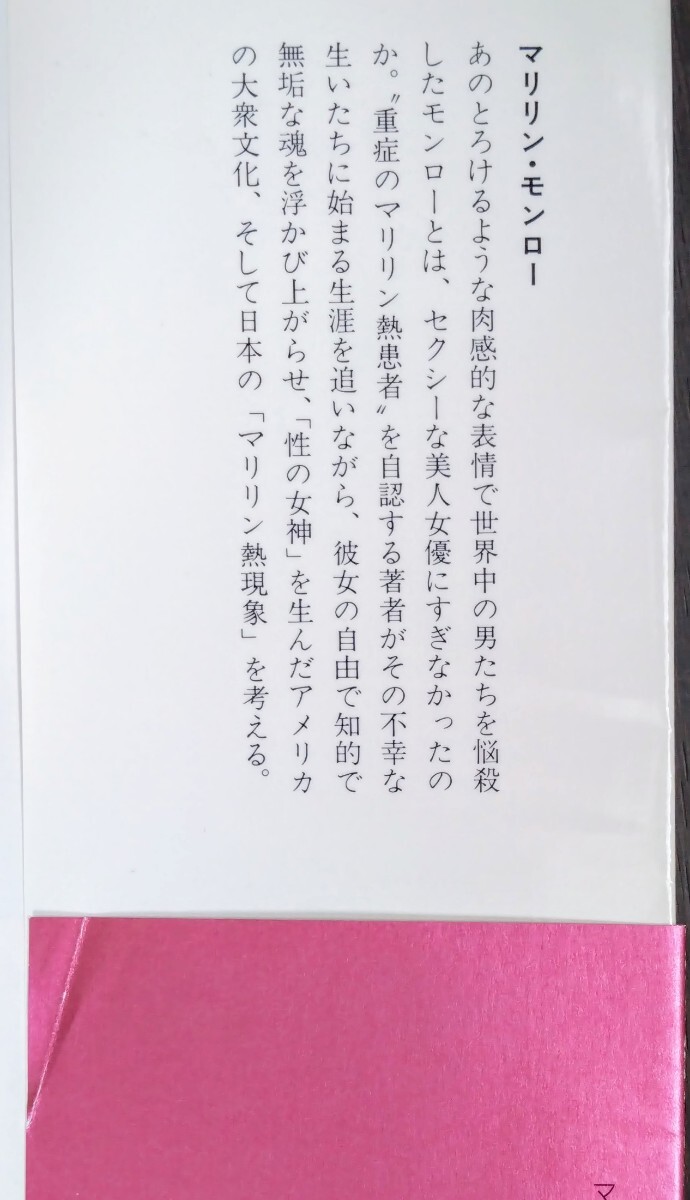 マリリン・モンロー
あのとろけるような肉感的な表情で世界中の男たちを悩殺
したモンローとは、セクシーな美人女優にすぎなかったの
か。〝重症のマリリン熱患者〟を自認する著者がその不幸な
生いたちに始まる生涯を追いながら、彼女の自由で知的で
無垢な魂を浮かび上がらせ、「性の女神」を生んだアメリカ
の大衆文化、そして日本の「マリリン熱現象」を考える。
マ